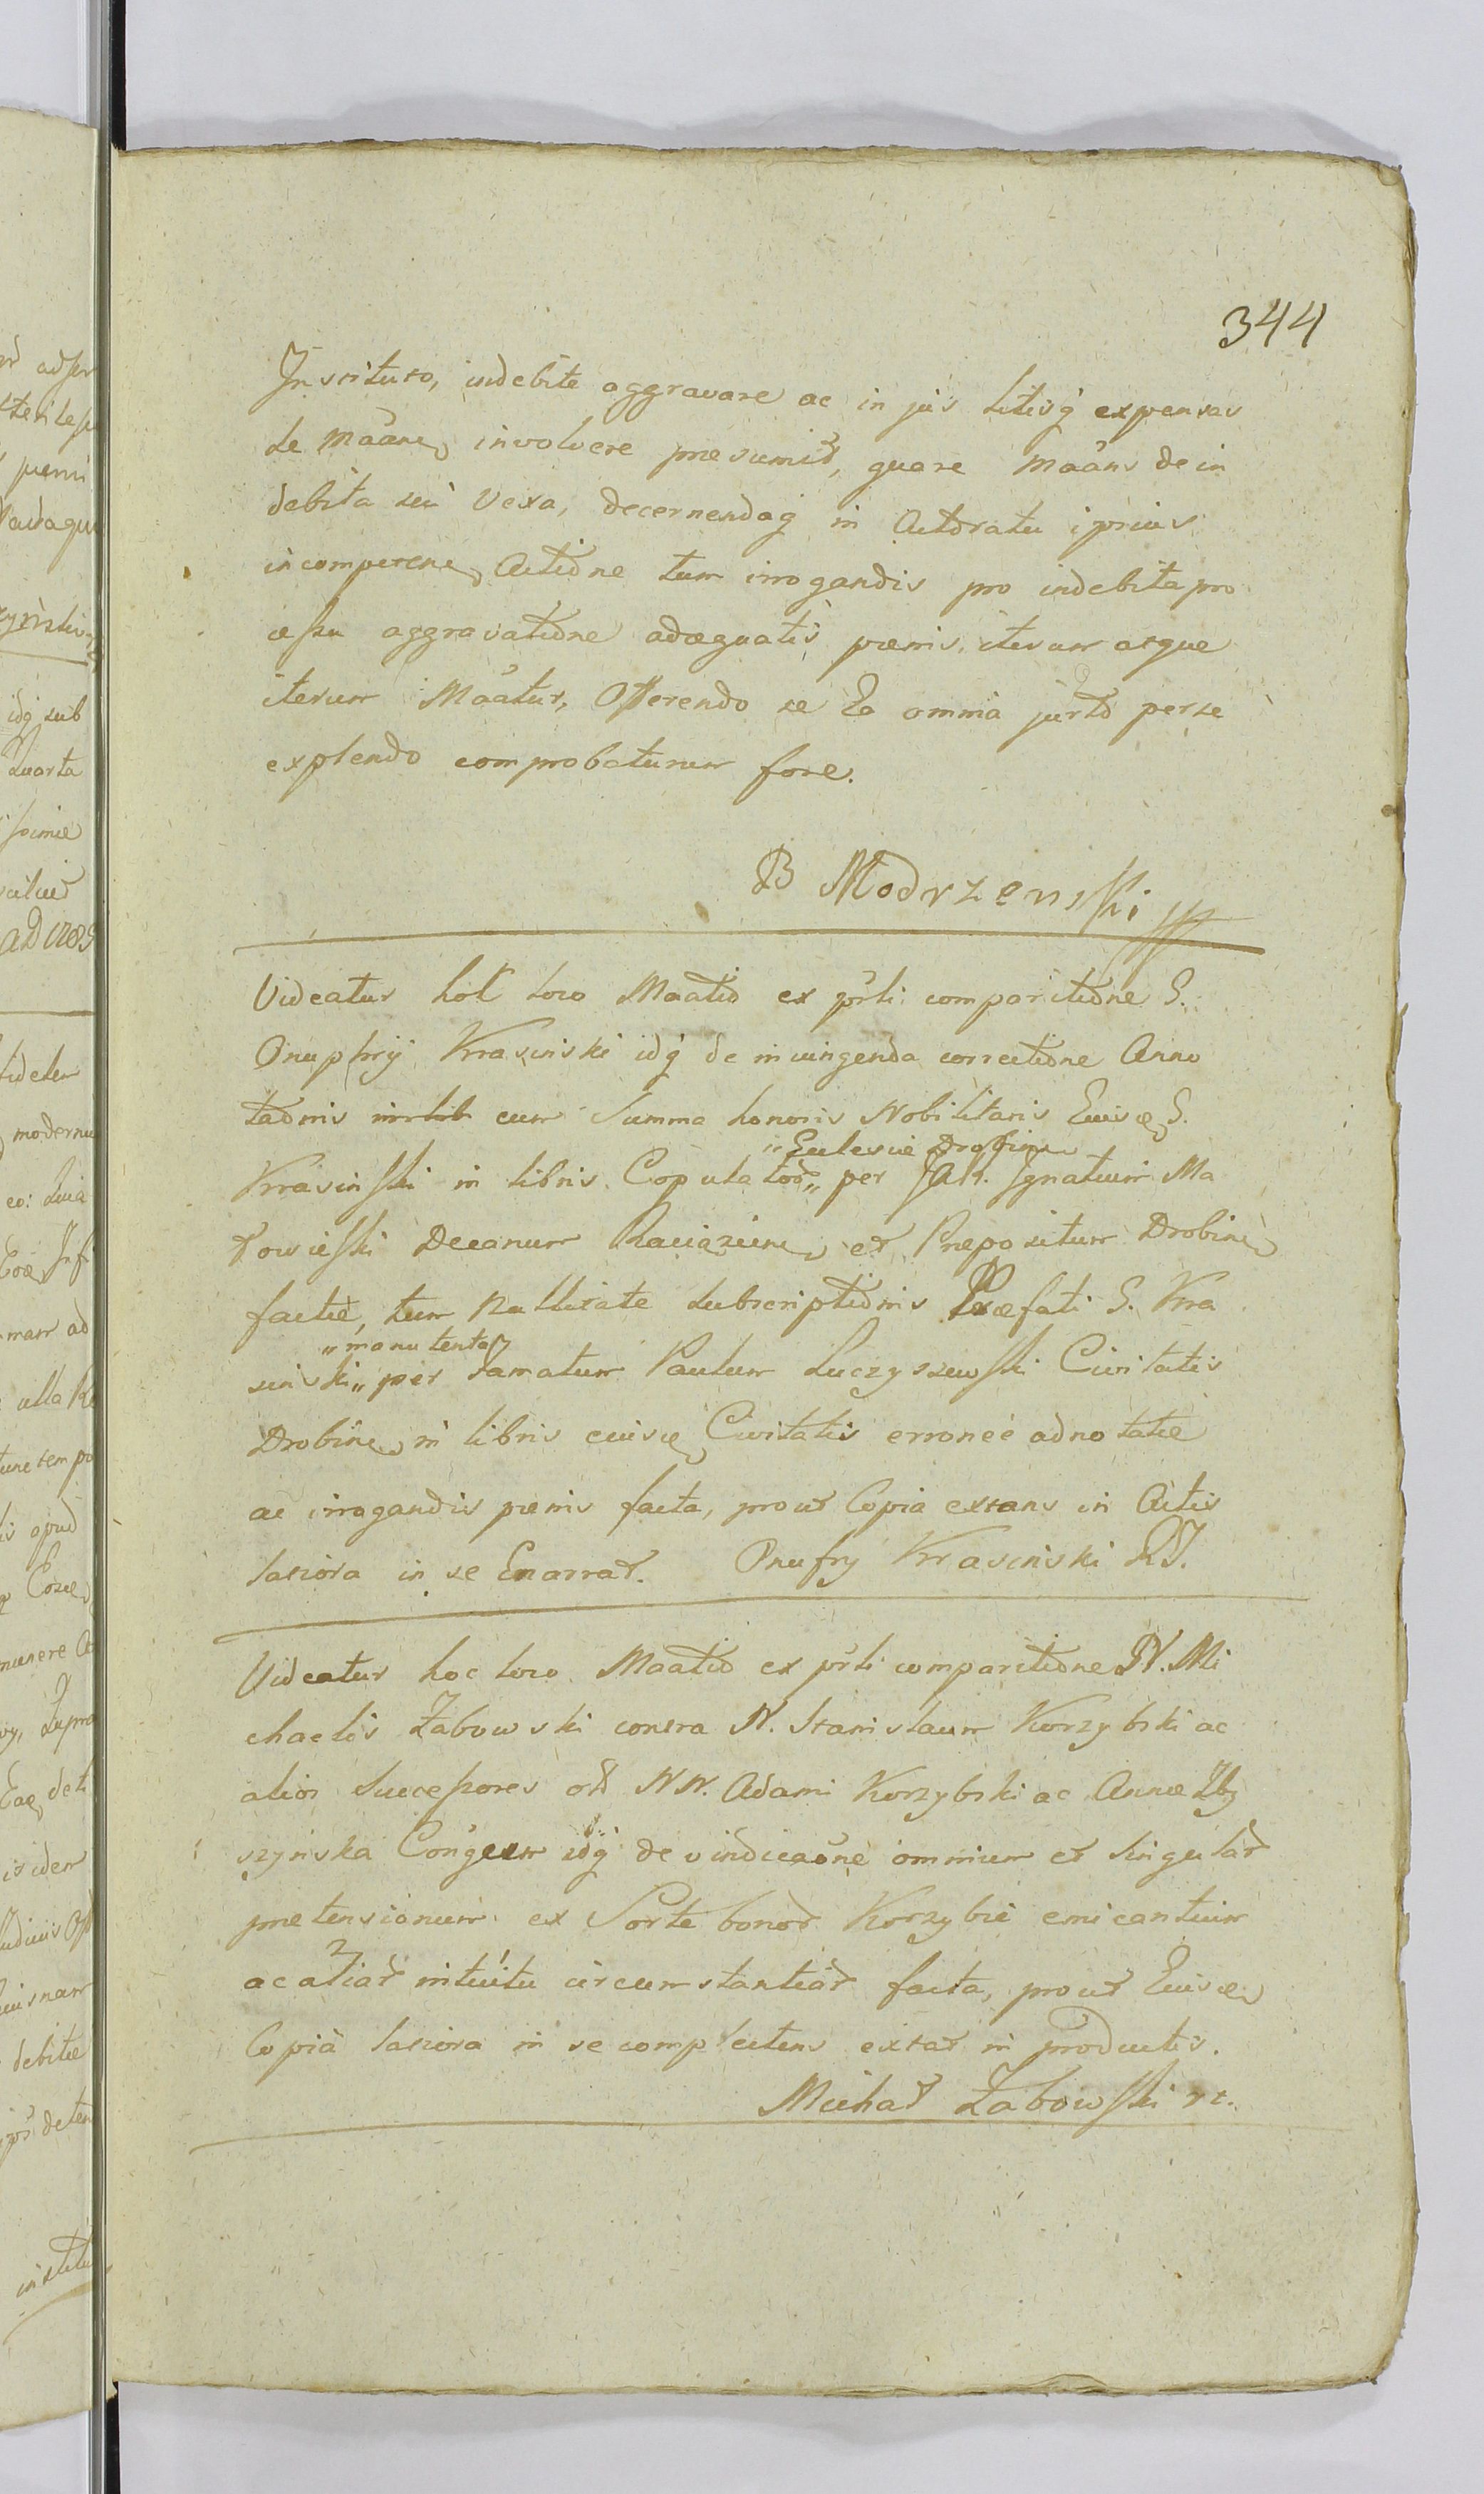 344
Instituto, indebite aggravare ac in jus litisq̃ expensas
de Mãane, involvere presumit, quare Mãans de in
debita sui Vexa, decernendaq̃ in Actoratu ipsius
incomperene, Actione tum irrogandis pro indebita pro
cessu aggravatione adæquatis pœnis, iterum atque
iterum Mãatur, Offerendo se Ea omnia jurto per se
explendo comprobaturum fore.
B Modrzenski
Videatur hoc loco Maatio ex prli comparitione G.
Onuphrij Krasinski idq̃ de iniungenda correctione Anno
taonis in lib cum Summa honoris Nobilitaris Euisce G.
"Ecclesiæ Drobine
Krasinski in libris Copulator" per Ignatium Ma
kowieski Decanum Raciązine et Prepositum Drobine
factæ, tum Nullitate Subscriptionis Præfati G. Kra
"manu tenta
sinski" per Famatum Paulum Luczyszewski Civitatis
Drobine, in libris euisce Civitatis erroneè adnotatæ
ac irrogandis pœnis facta, prout Copia extans in Actis
latiora in se Enarrat. Onufry Krasinski
Videatur hoc loco Maatio ex prli comparitione N. Mi
chaelis Żabowski contra N. Stanislaum Korzybski ac
alios Successores old NN. Adami Korzybski ac Annæ Zby
szynska Conĝeum idq̃ de vindicaone omnium et Singular
pretensionum ex Sorte bonor Korzybie emicantium
ac aliar intuitu circumstantiar facta, prout Euisce
Copia latiora in se complectens extat in productis.
Michał Żabowski